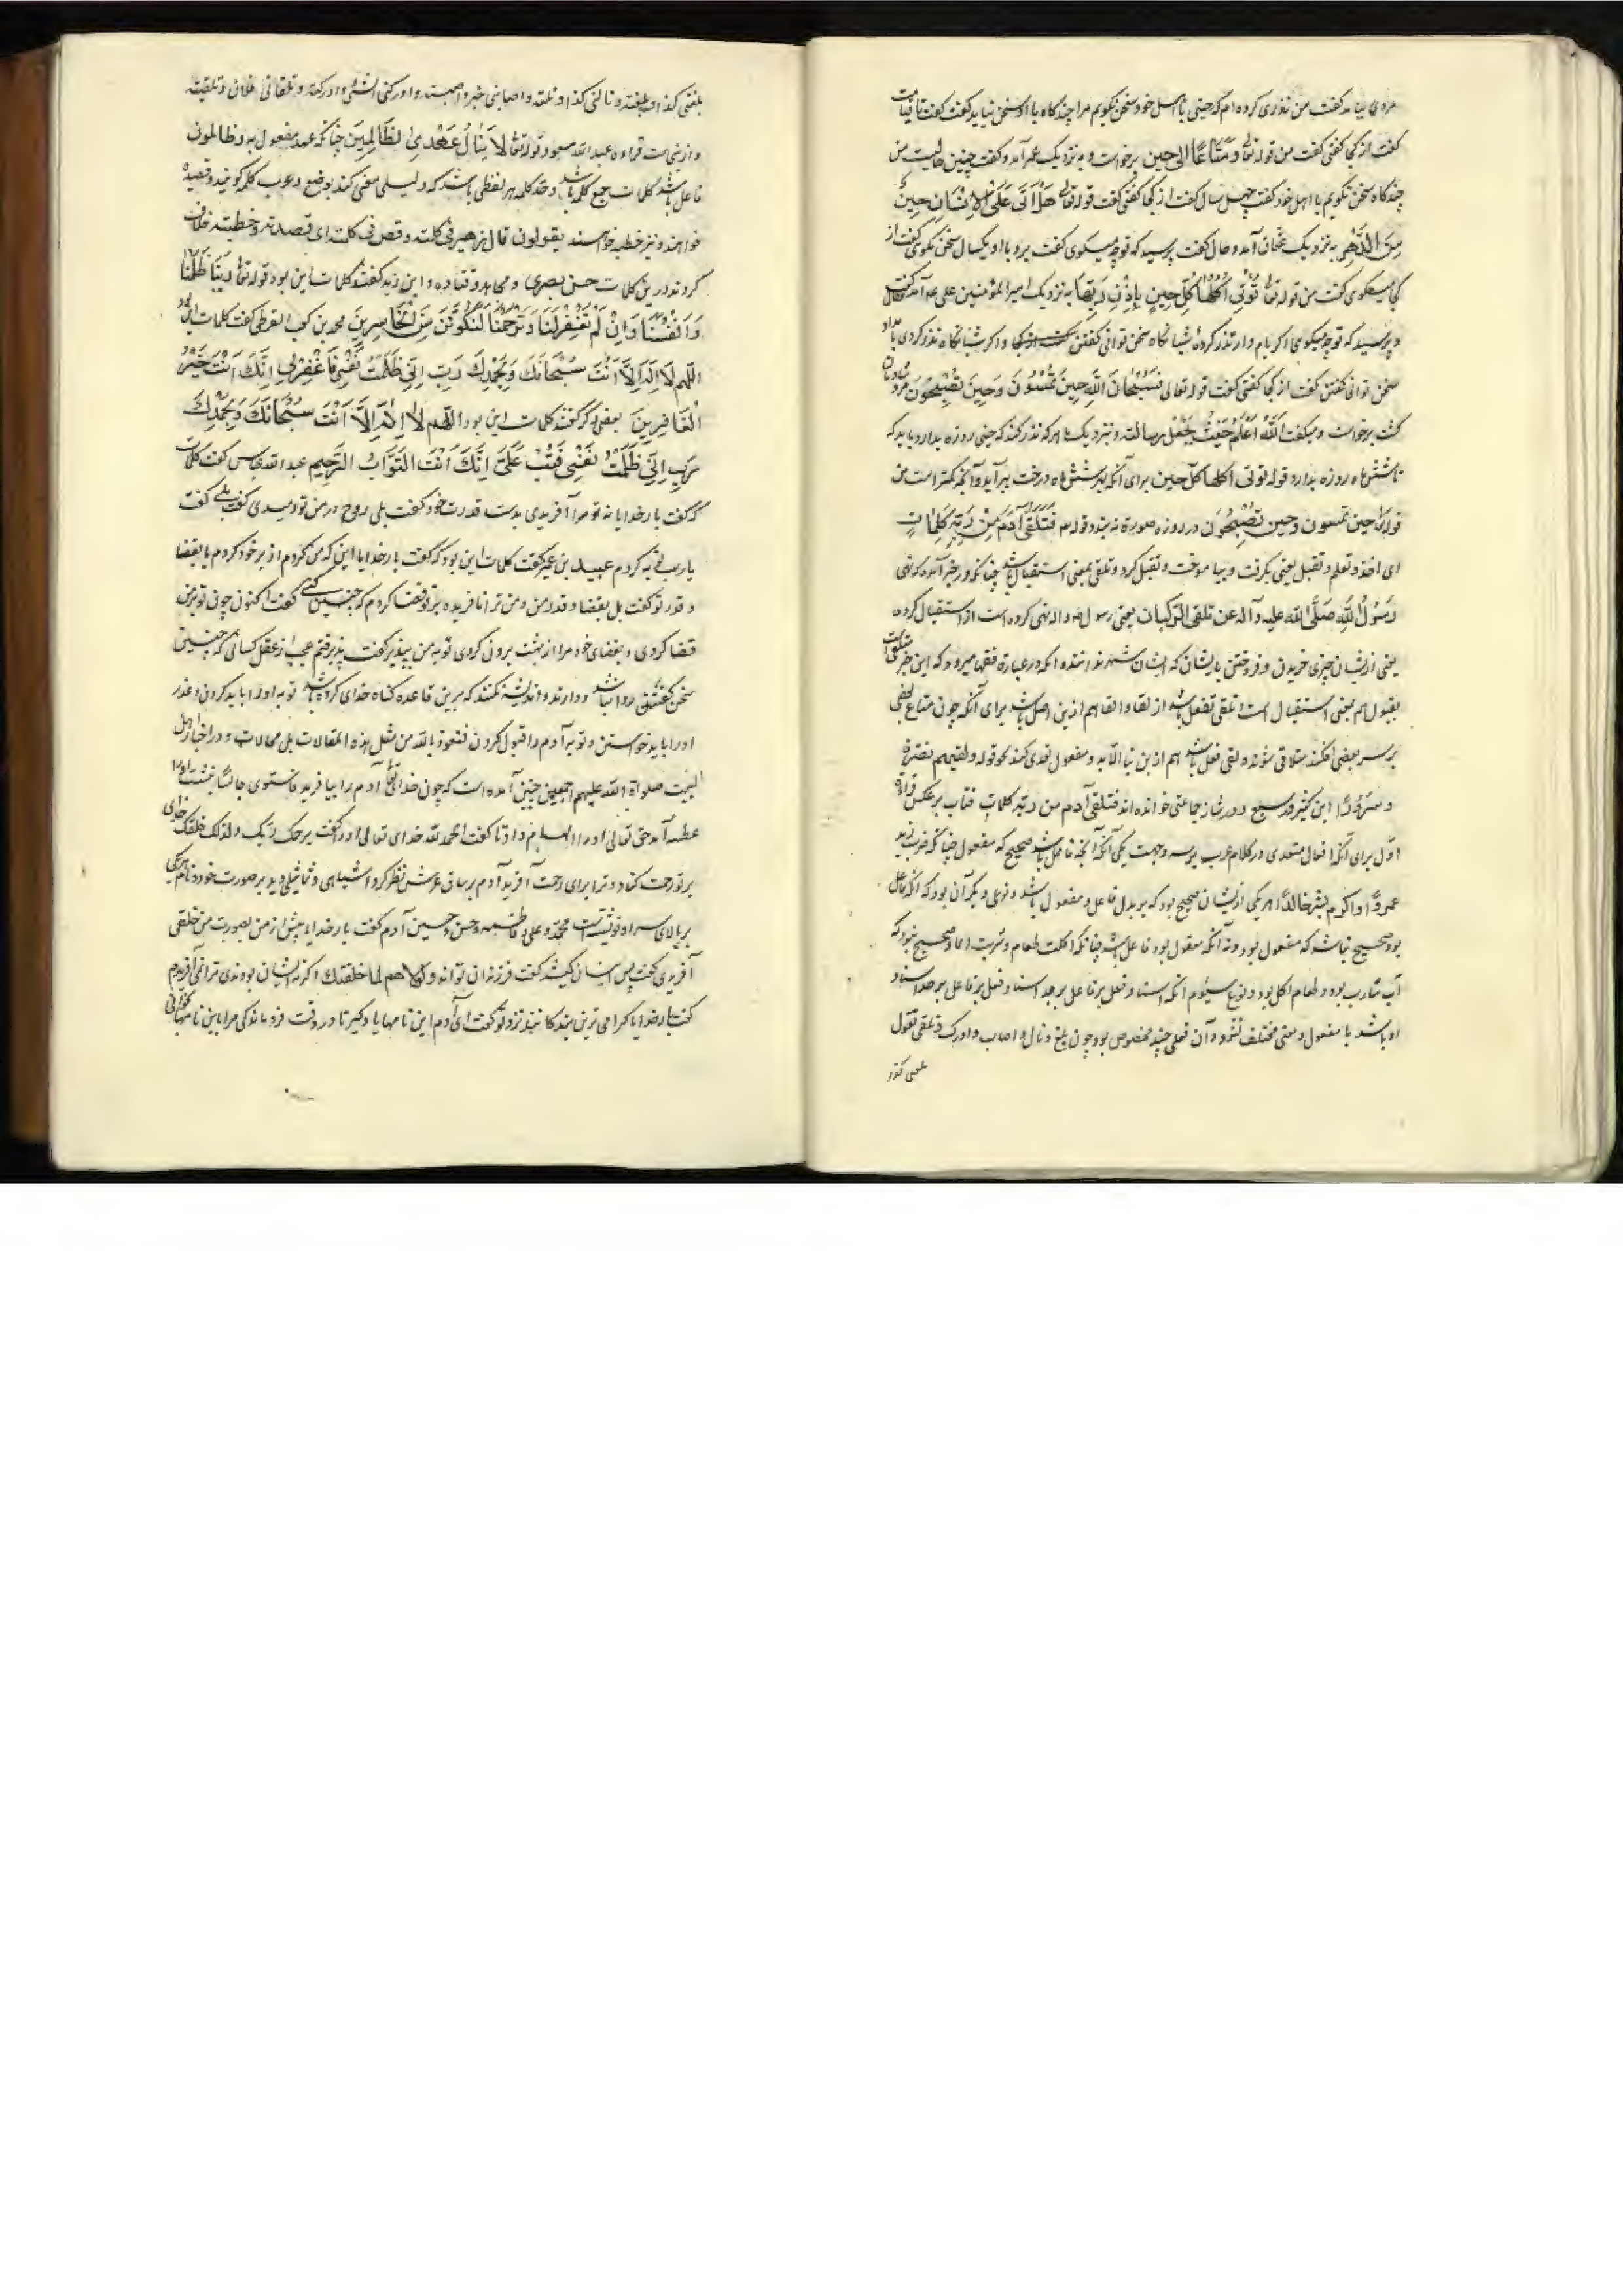 مردی بیامد گفت من نذری کرده‌ام که حینی با اهل خود سخن نگویم مرا چند گاه با او سخن نباید گفت گفت تا قیامت
گفت از کجا گفتی گفت من قوله تعالی وَمَتَاعًا اِلی حین برخواست و به نزدیک عمر آمد و گفت چنین حالیست من
چند گاه سخن نگویم با اهل خود گفت چهل سال گفت از کجا گفتی گفت قوله تعالی هَلْ اَتَی عَلَی الاِنْسَانِ حِینٌ
مِنَ الدَّهْرِ به نزدیک عثمان آمد و حال گفت پرسید که تو چه میگوی گفت برو با او یکسال سخن مگوی گفت از
کجا میگوی گفت من قوله تعالی تُؤْتِی اُکُلَهَا کُلَّ حِینٍ بِاِذْنِ رَبِّهَا به نزدیک امیر المؤمنین علی علیه آمد
و پرسید که تو چه میگوی اگر بامداد نذر کردهٔ شبانگاه سخن توانی گفتن و اگر شبانگاه نذر کردی بامداد
سخن توانی گفتن گفت از کجا گفتی گفت قوله تعالی فَسُبْحَانَ اللّٰهِ حِینَ تُمْسُونَ وَحِینَ تُصْبِحُونَ مرد شادمان
گشت برخواست و میگفت اَللّٰهُ اَعْلَمُ حَیْثُ یَجْعَلُ رسالته و بنزدیک ما هر که نذر کند که حینی روزه بدارد باید که
تا شش ماه روزه بدارد قوله تؤتی اکلها کل حین برای آنکه بر شش ماه درخت ببر آید و آنچه کمتر است من
قوله تعالی حین تمسون وحین تُصْبِحُونَ در روزه صورة نه بندد قوله فَتَلَقَّی آدَمُ مِنْ رَبِّهِ کَلِمَاتٍ
ای اخذ و تعلم و تقبل یعنی بگرفت و بیاموخت و تقبل کرد و تلقی بمعنی استقبال باشد چنانکه در خبر آمده که نهی
رَسُولُ اللّٰهِ صَلَّی اللّٰه علیه و آله عن تلقی الرکبان یعنی رسول و اله نهی کرده است از استقبال کرده
یعنی ازیشان چیزی خریدن و فروختن باایشان که ایشان شهر ندانند و آنکه در عبارة فقها میرود که این خبر متلقی است
بقبول هم بمعنی استقبال است و تلقی تفعل باشد از لقا و القا هم ازین اصل باشد برای آنکه چون متاع بعضی
بر سر بعضی افکند متلاقی شوند و لقی فعل باشد هم ازین بنا الا بدو مفعول تعدی کند نحو قوله ولقیهم نضرة
و سرورًا ابن کثیر در سبع و در شاذ جماعتی خوانده‌اند فتلقی آدم من ربه کلمات فتاب بر عکس قراءة
اول برای آنکه افعال متعدی در کلام عرب بر سه وجهست یکی آنکه آنچه فاعل باشد صحیح که مفعول چنانکه ضرب زید
عمرًوا و اکرم بشر خالدًا هر یکی ازیشان صحیح بود که بر بدل فاعل و مفعول باشد و نوعی دیگر آن بود که آنکه فاعل
بود صحیح نباشد که مفعول بود و نه آنکه مفعول بود فاعل باشد چنانکه اکلت طعام و شربت الماء و صحیح نبود که
آب شارب بود و طعام اکل بود و نوع سیوم آنکه اسناد فعل بر فاعل بر حد اسناد فعل بر فاعل بر حد اسناد
او باشد با مفعول و معنی مختلف نشود و آن فعلی چند مخصوص بود چون بلغ و نال و اصاب و ادرک و تلقی تقول
بلغنی کذا
بلغنی کذا و بلغته و نالنی کذا و نلته و اصابنی خیر و اصبته و ادرکنی الشیٔ و ادرکته و تلقانی فلان و تلقیته
و ازینست قراءه عبدالله مسعود قوله تعالی لا یَنَالُ عَهْدِی الظَّالِمِینَ چنانکه عهد مفعول به و ظالمون
فاعل باشد کلمات جمع کلمه باشد و حد کلمه هر لفظی باشد که دلیلی معنی کند بوضع و عرب کلمه گویند و قصیده
خواهند و نیز خطبه خواهند یقولون قال زهیر فی کلمته و قص فی کلمته ای قصیدته و خطبته خلاف
کردند در این کلمات حسن بصری و مجاهد و قتاده و ابن زید گفتند کلمات این بود قوله تعالی رَبَّنَا ظَلَمْنَا
وَاَنْفُسَنَا وَاِنْ لَمْ تَغْفِرْ لَنَا وَتَرْحَمْنَا لَنَکُونَنَّ مِنَ الْخَاسِرِینَ محمد بن کعب القرظی گفت کلمات این بود
اللّٰهم لَا اِلٰهَ اِلَّا اَنْتَ سُبْحَانَکَ وَبِحَمْدِکَ رَبِّ اِنِّی ظَلَمْتُ نَفْسِی فَاغْفِرْلِی اِنَّکَ اَنْتَ خَیْرُ
الْغَافِرِینَ بعضی دگر گفتند کلمات این بود اللّٰهم لَا اِلٰهَ اِلَّا اَنْتَ سُبْحَانَکَ وَبِحَمْدِکَ
رَبِّ اِنِّی ظَلَمْتُ نَفْسِی فَتُبْ عَلَیَّ اِنَّکَ اَنْتَ التَّوَّابُ الرَّحِیم عبد الله عباس گفت کلمات
که گفت بار خدایا نه تو مرا آفریدی بدست قدرت خود گفت بلی روح در من تو دمیدی گفت بلی گفت
یا رب توبه کردم عبید بن عمیر گفت کلمات این بود که گفت بار خدایا این که من کردم از بر خود کردم یا بقضا
و قدر تو گفت بل بقضا و قدر من و من ترا نافریده بر تو قضا کردم که چنین کنی گفت اکنون چون تو بر من
قضا کردی و بقضای خود مرا از بهشت برون کردی توبه من بپذیر گفت پذیرفتم عجب از عقل کسانی که چنین
سخن گفتن روا دارند و اندیشه نکنند که برین قاعده گناه خدای کرده باشد توبه او را باید کردن و عذر
او را باید خواستن و توبه آدم را قبول کردن فنعوذ بالله من مثل هذه المقالات بل محالات و در اخبار اهل
البیت صلواة الله علیهم اجمعین چنین آمده است که چون خدای تعالی آدم را بیافرید فاستوی جالسًا بنشست او را
عطسه آمد حق تعالی او را الهام داد تا گفت الحمد لله خدای تعالی او را گفت یرحمک ربک و لذلک خلقک خدای
بر تو رحمت کناد و ترا برای رحمت آفرید آدم بر ساق عرش نظر کرد اشباهی و تماثیلی دید بر صورت خود و نام هر یکی
بر بالای سر او نوشتست محمد و علی و فاطمه و حسن و حسین آدم گفت بار خدایا پیش از من بصورت من خلقی
آفریدی گفت پس اینان کیستند گفت فرزندان تواند ولولاهم لما خلقتک اگر نه ایشان بودندی ترا نیافریدم
گفت بار خدایا گرامی ترین بندگانند نزد تو گفت ای آدم این نامها یاد گیر تا در وقت فروماندگی مرا باین نامها بخوانی